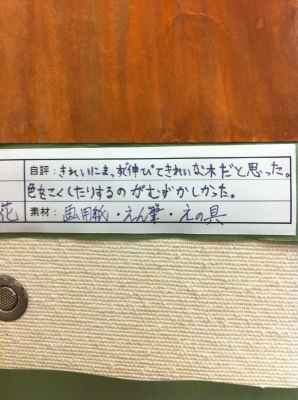 自評：きれいにまっすぐ伸びてきれいな木だと思った。
色をこくしたりするのがむずかしかった。
花
素材：画用紙・えん筆・えの具